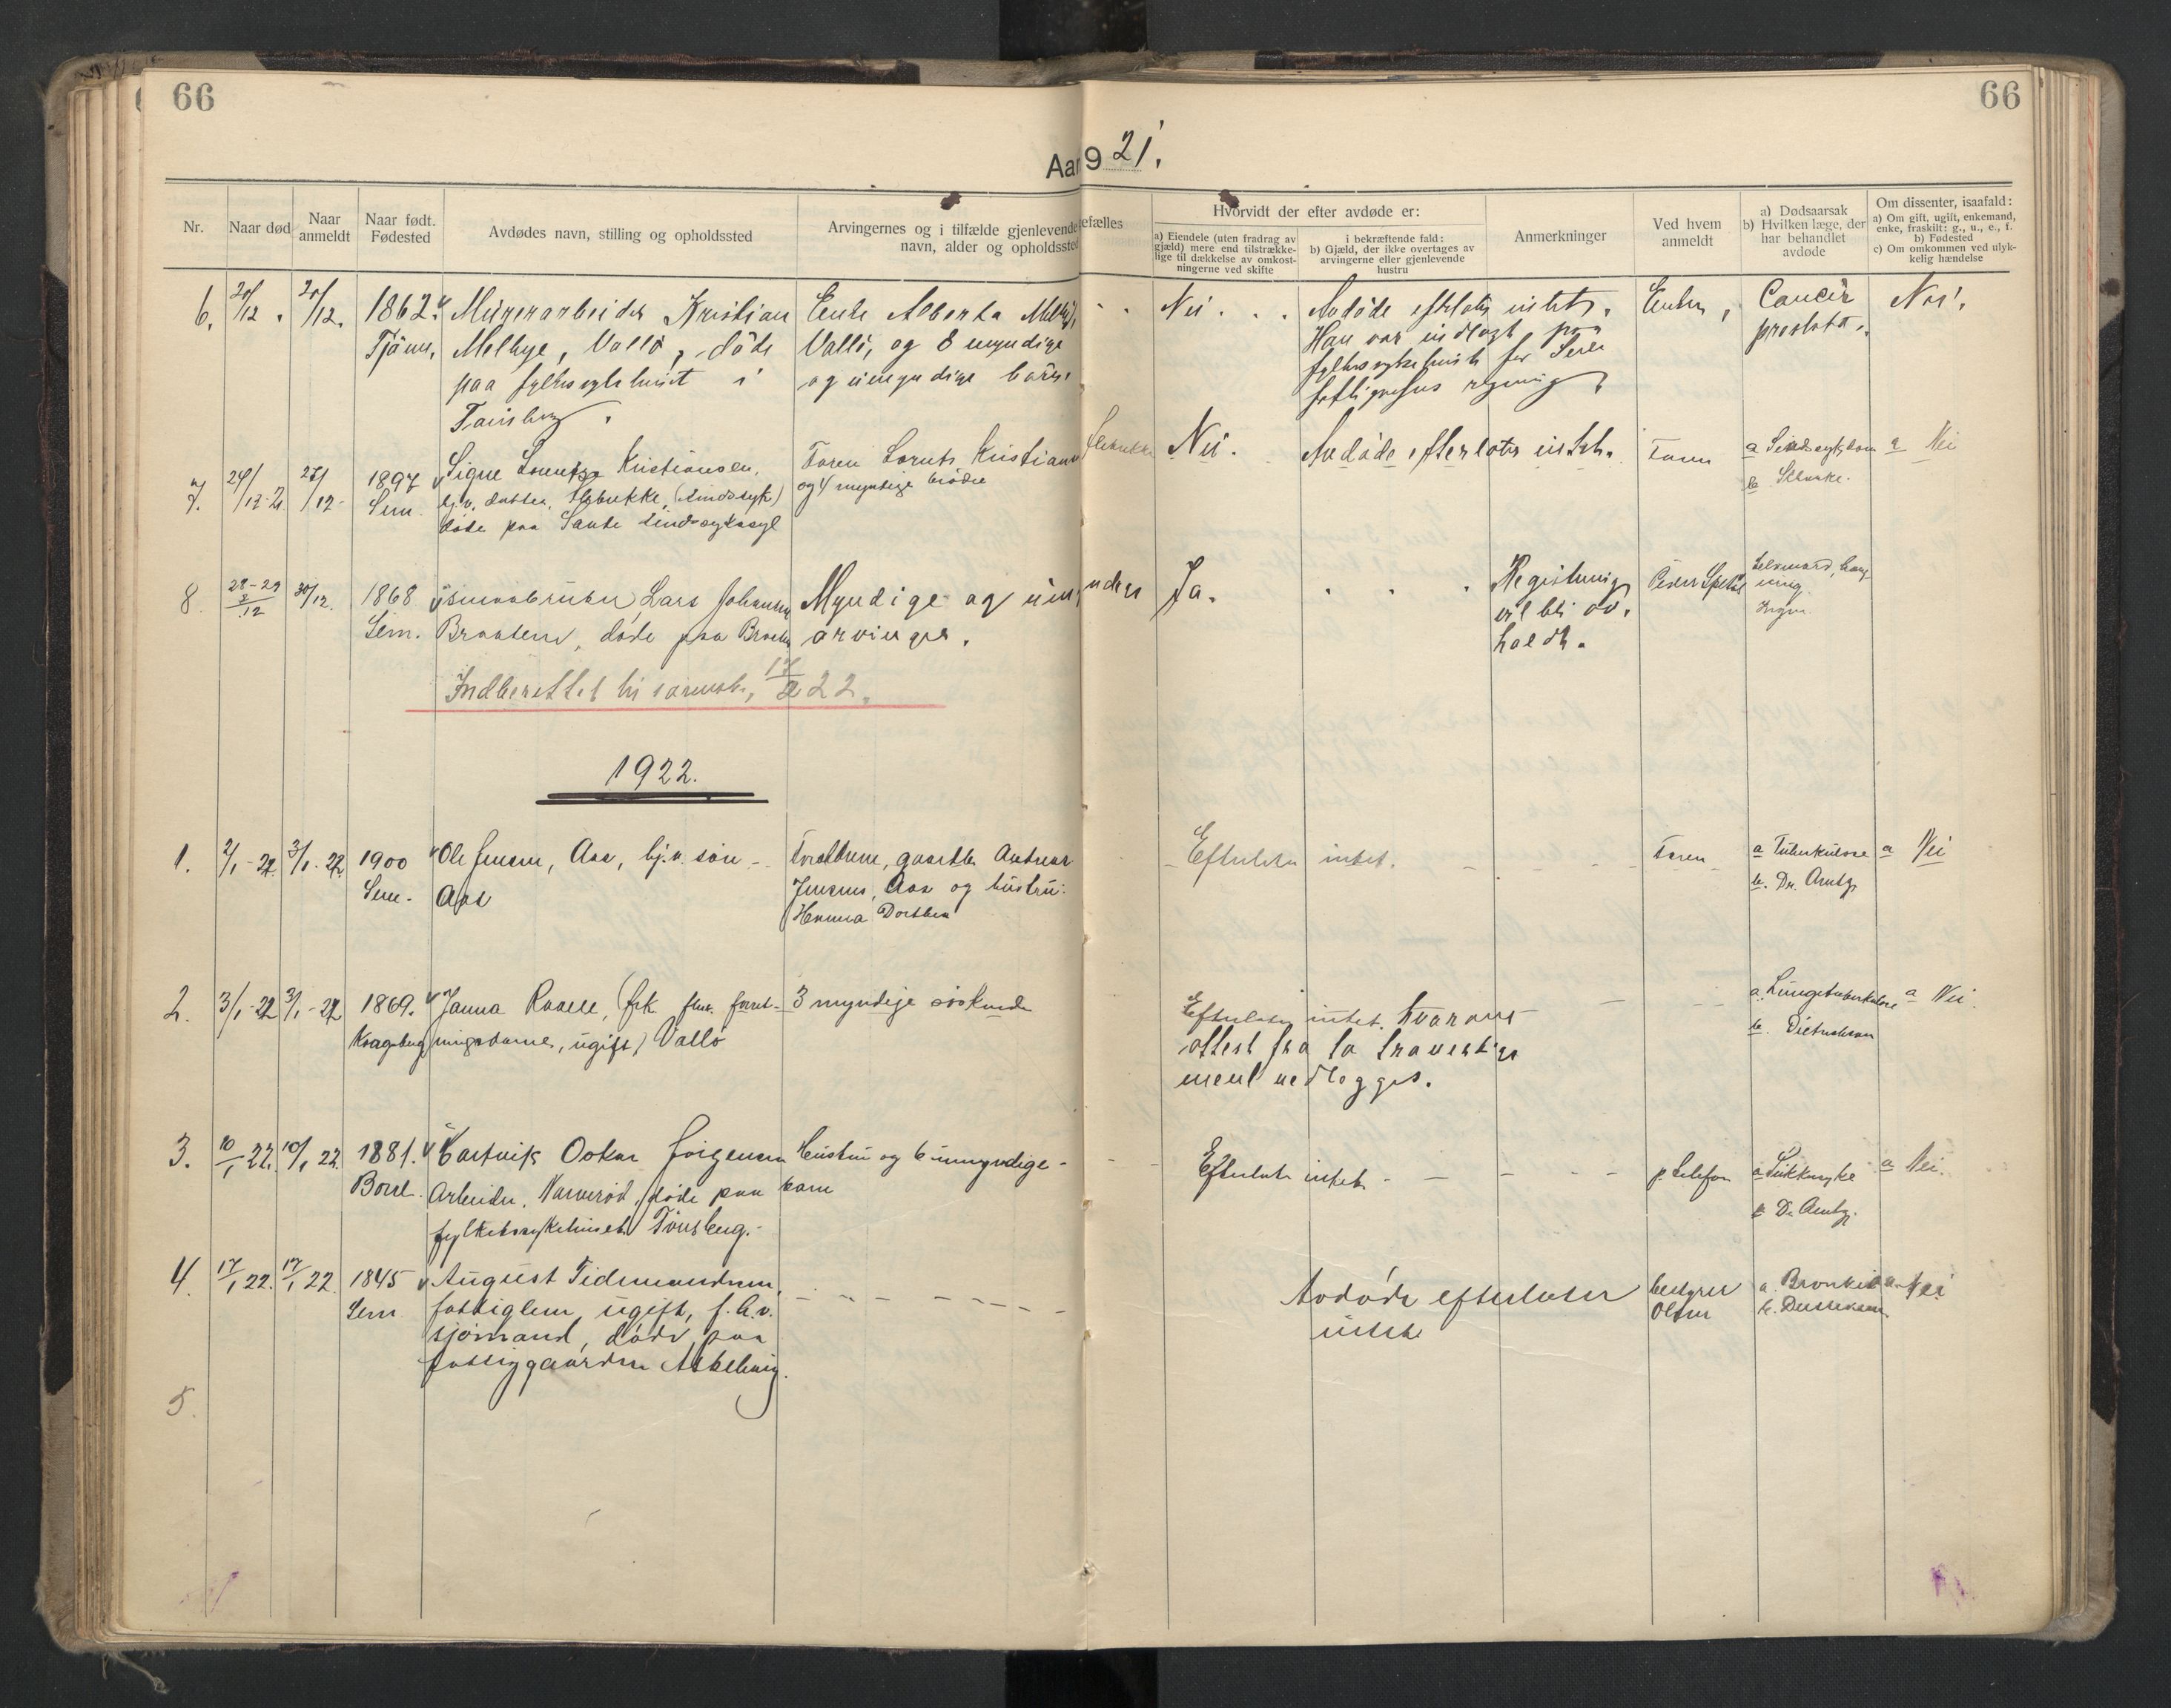 66
66
Aar 1921.
Nr.
Naar død
Naar anmeldt
Naar født. Fødested
Avdødes navn, stilling og opholdssted
Arvingernes og i tilfælde gjenlevende
navn, alder og opholdssted
efælles
Hvorvidt der efter avdøde er:
a) Eiendele (uten fradrag av
gjæld) mere end tilstrække-
lige til dækkelse av omkost-
ningerne ved skifte
i bekræftende fald:
b) Gjæld, der ikke overtages av
arvingerne eller gjenlevende
hustru
Anmerkninger
Ved hvem
anmeldt
a) Dødsaarsak
b) Hvilken læge, der
har behandlet
avdøde
Om dissenter, isaafald:
a) Om gift, ugift, enkemand,
enke, fraskilt: g., u., e., f.
b) Fødested
c) Om omkommen ved ulyk-
kelig hændelse
6.
/12.
/12.
1862.
Murerarbeider Kristian
Melbye, Vallø, døde
paa fylkessykehuset i
Tønsberg.
Enke Alberta
Vallø, og 8 myndige
og umyndige barn.
Nei.
Avdøde efterlater intet.
Han var indlagt paa
fylkessykehuset for Sem
regning
Enken,
Cancer
prostata.
Nei.
7.
24/12-21
27/12-
1897
Sem.
Signe Kristiansen,
hj.v. datter, (sindssyk)
døde paa Sande sindssykeasyl
Faren Kristian
og 4 myndige brødre
Nei.
Avdøde efterlater intet.
Faren
a Sindssykdom
b
a Nei
8.
28-29/12
30/12.
1868
Sem.
Smaabruker Lars Johansen
Braaten, døde paa Braaten
Myndige og um
yndige
arvinger.
Ja.
Registrering
vil bli av-
holdt.
Peder
Selvmord, hæng-
ning.
Ingen.
Indberettet til sorensk. 17/2 22.
1922.
1.
2/1-22
3/1-22
1900
Sem.
Ole Jensen, Aas, hj.v. søn
Aas
Forældrene, gaardbr. Andreas
Jensens, Aas og hustru
Hanna Dorthea
Efterlater intet.
Faren
a Tuberkulose
b. Dr. Arntz.
a Nei
2.
3/1-22
3/1-22
1869.
Janna Raaen, (frk. forret-
ningsdame, ugift) Vallø
3 myndige søskende
Efterlater intet.
attest fra
nedlegges.
a. Lungetuberkulose
b. Dietrichson
a Nei.
3.
10/1 22.
10/1 22.
1881.
Borre.
Hartvik Oskar Jørgensen
Arbeider, Narverød, døde paa
fylkessykehuset Tønsberg.
Hustru og 6 umyndige
barn
Efterlater intet.
p. telefon
a Sukkersyke
b Dr. Arntz.
a Nei.
4.
17/1 22.
17/1 22
1845
Sem
August Tidemandsen,
fattiglem, ugift, f.h.v.
sjømand, døde paa
fattiggaarden
Avdøde efterlater
intet
bestyrer
Olsen
a. Bronkit
b.
a. Nei
5.